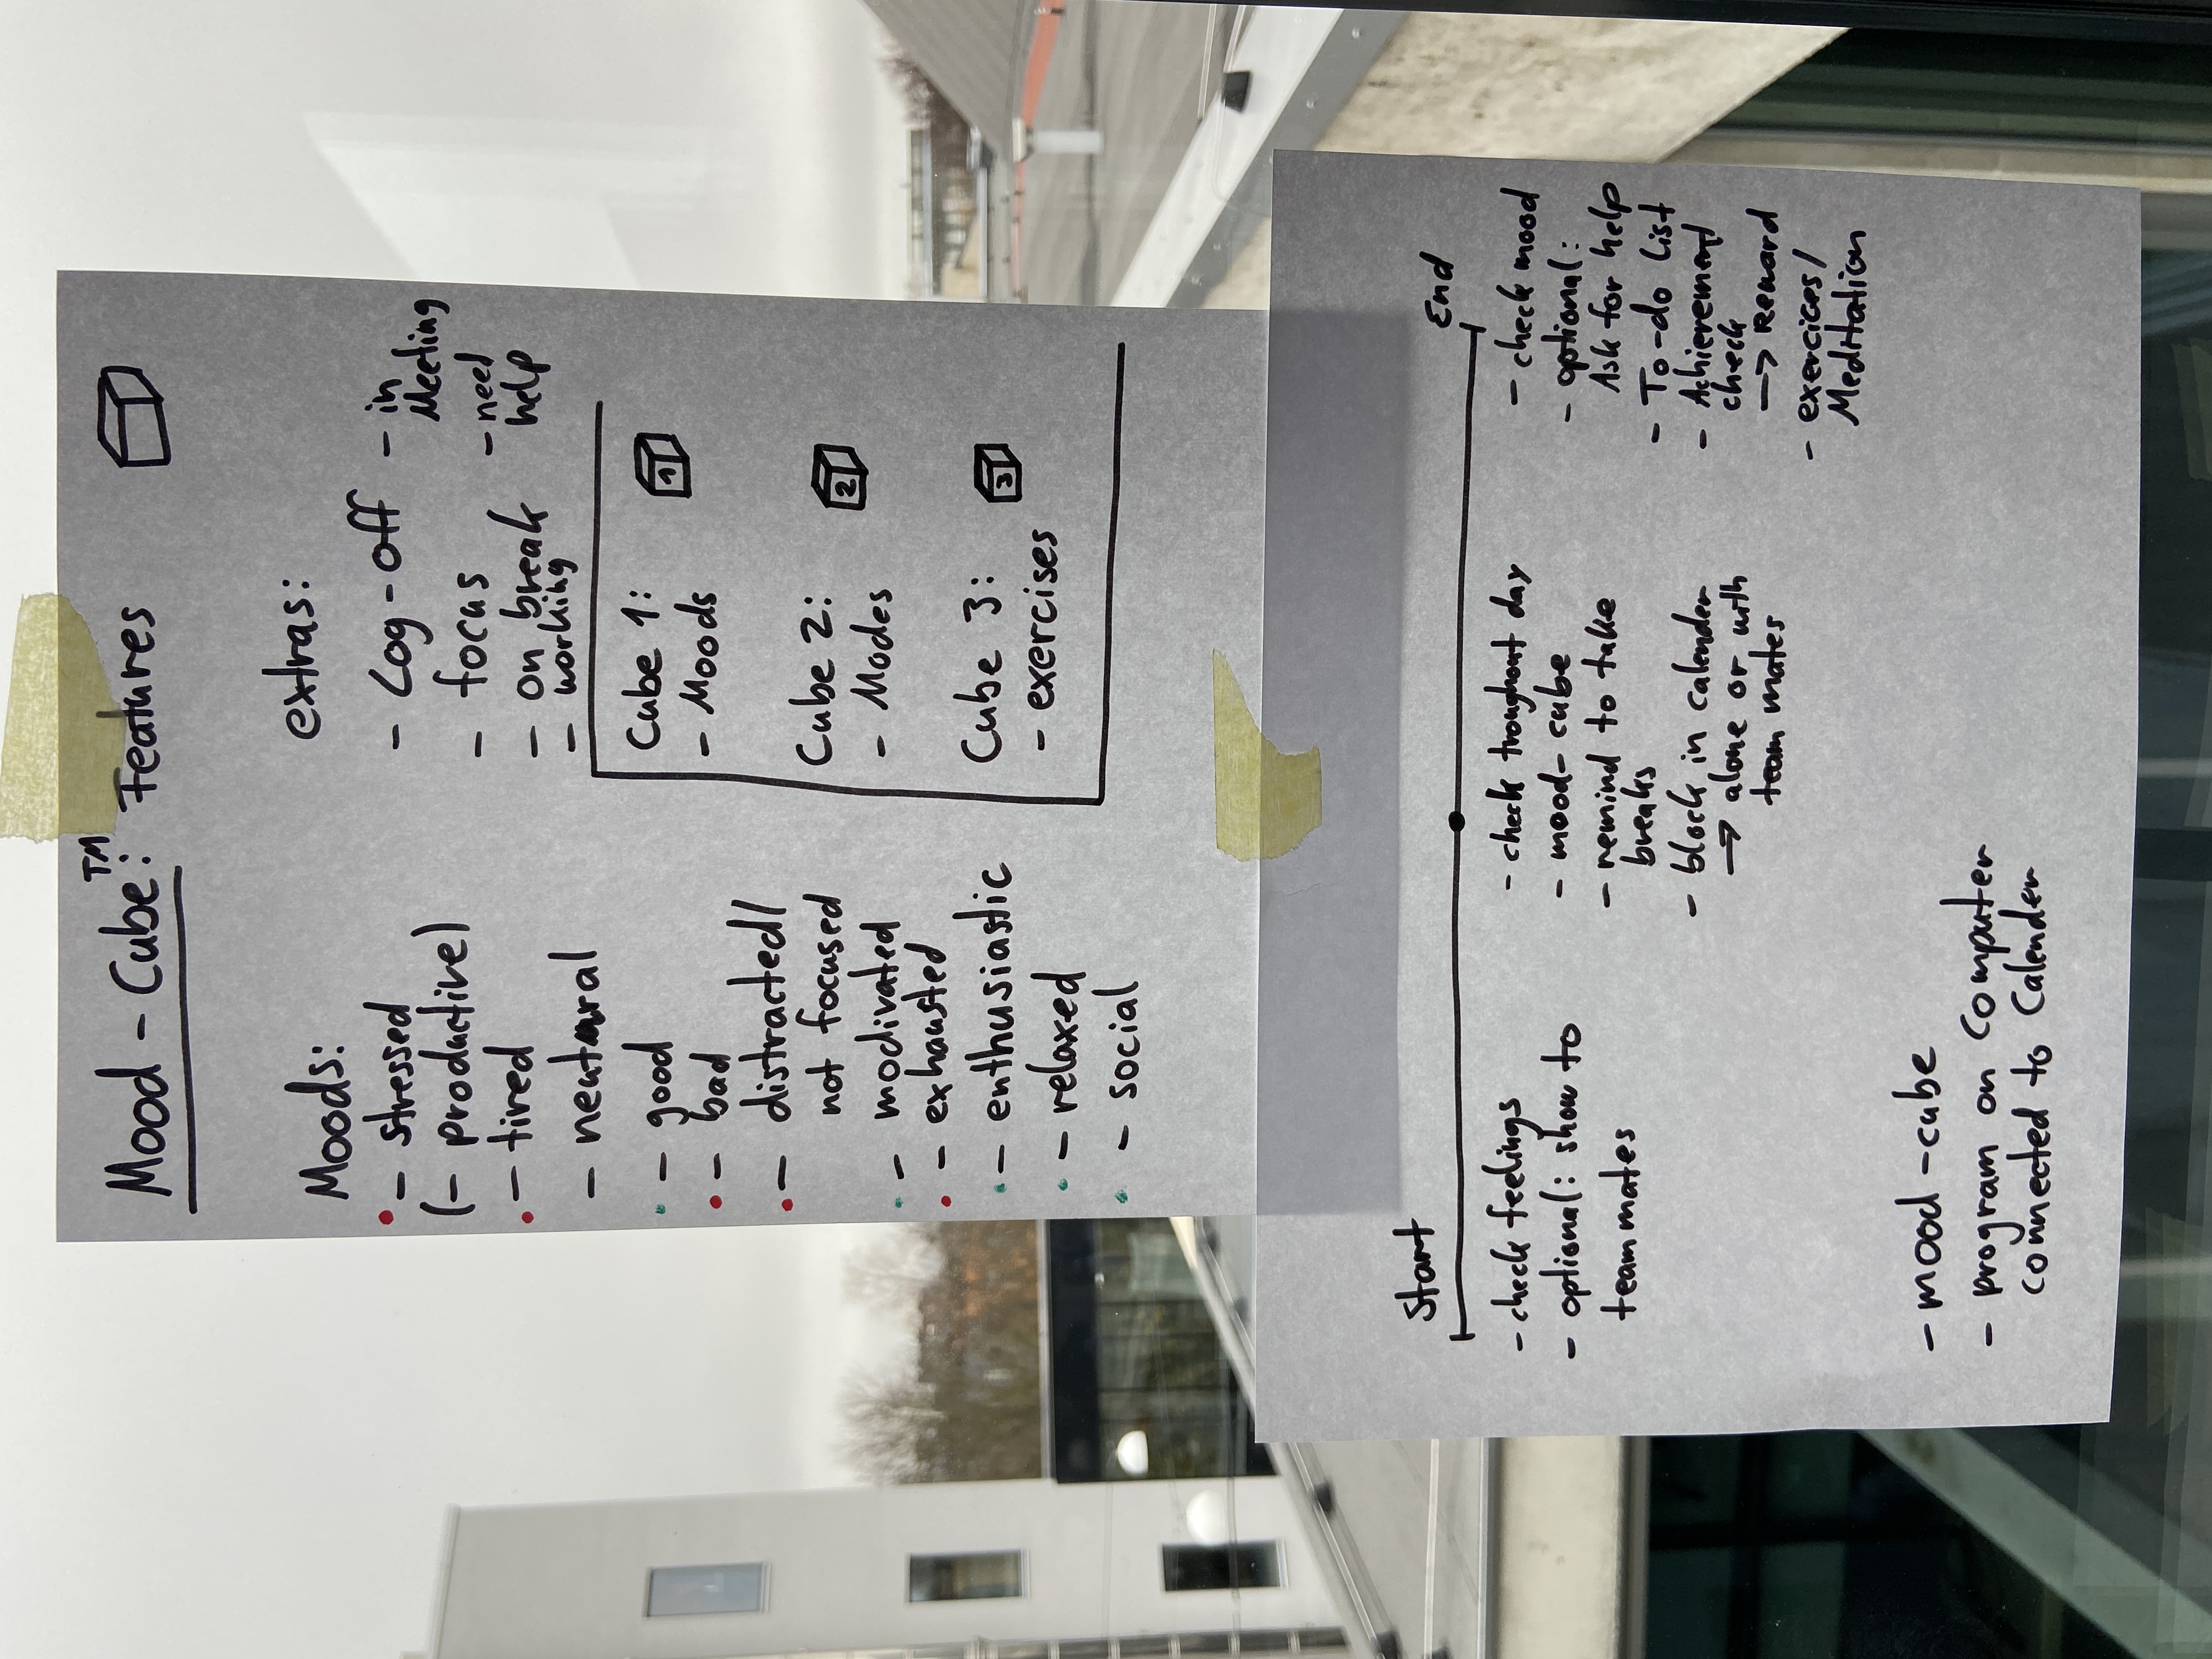 Mood - Cube™: Features
Moods:
- stressed
(- productive)
- tired
- neutural
- good
- bad
- distracted/
not focused
- modivated
- exhausted
- enthusiastic
- relaxed
- social
extras:
- Log-off
- focus
- on break
- working
- in
Meeting
- need
help
Cube 1:
1
- Moods
Cube 2:
2
- Modes
Cube 3:
3
- exercises
Start
- check feelings
- optional: show to
team mates
- check troughout day
- mood-cube
- remind to take
breaks
- block in calender
→ alone or with
team mates
End
- check mood
- optional:
Ask for help
- To-do list
- Achievement
check
→ Reward
- exercices/
Meditation
- mood-cube
- program on Computer
connected to Calender